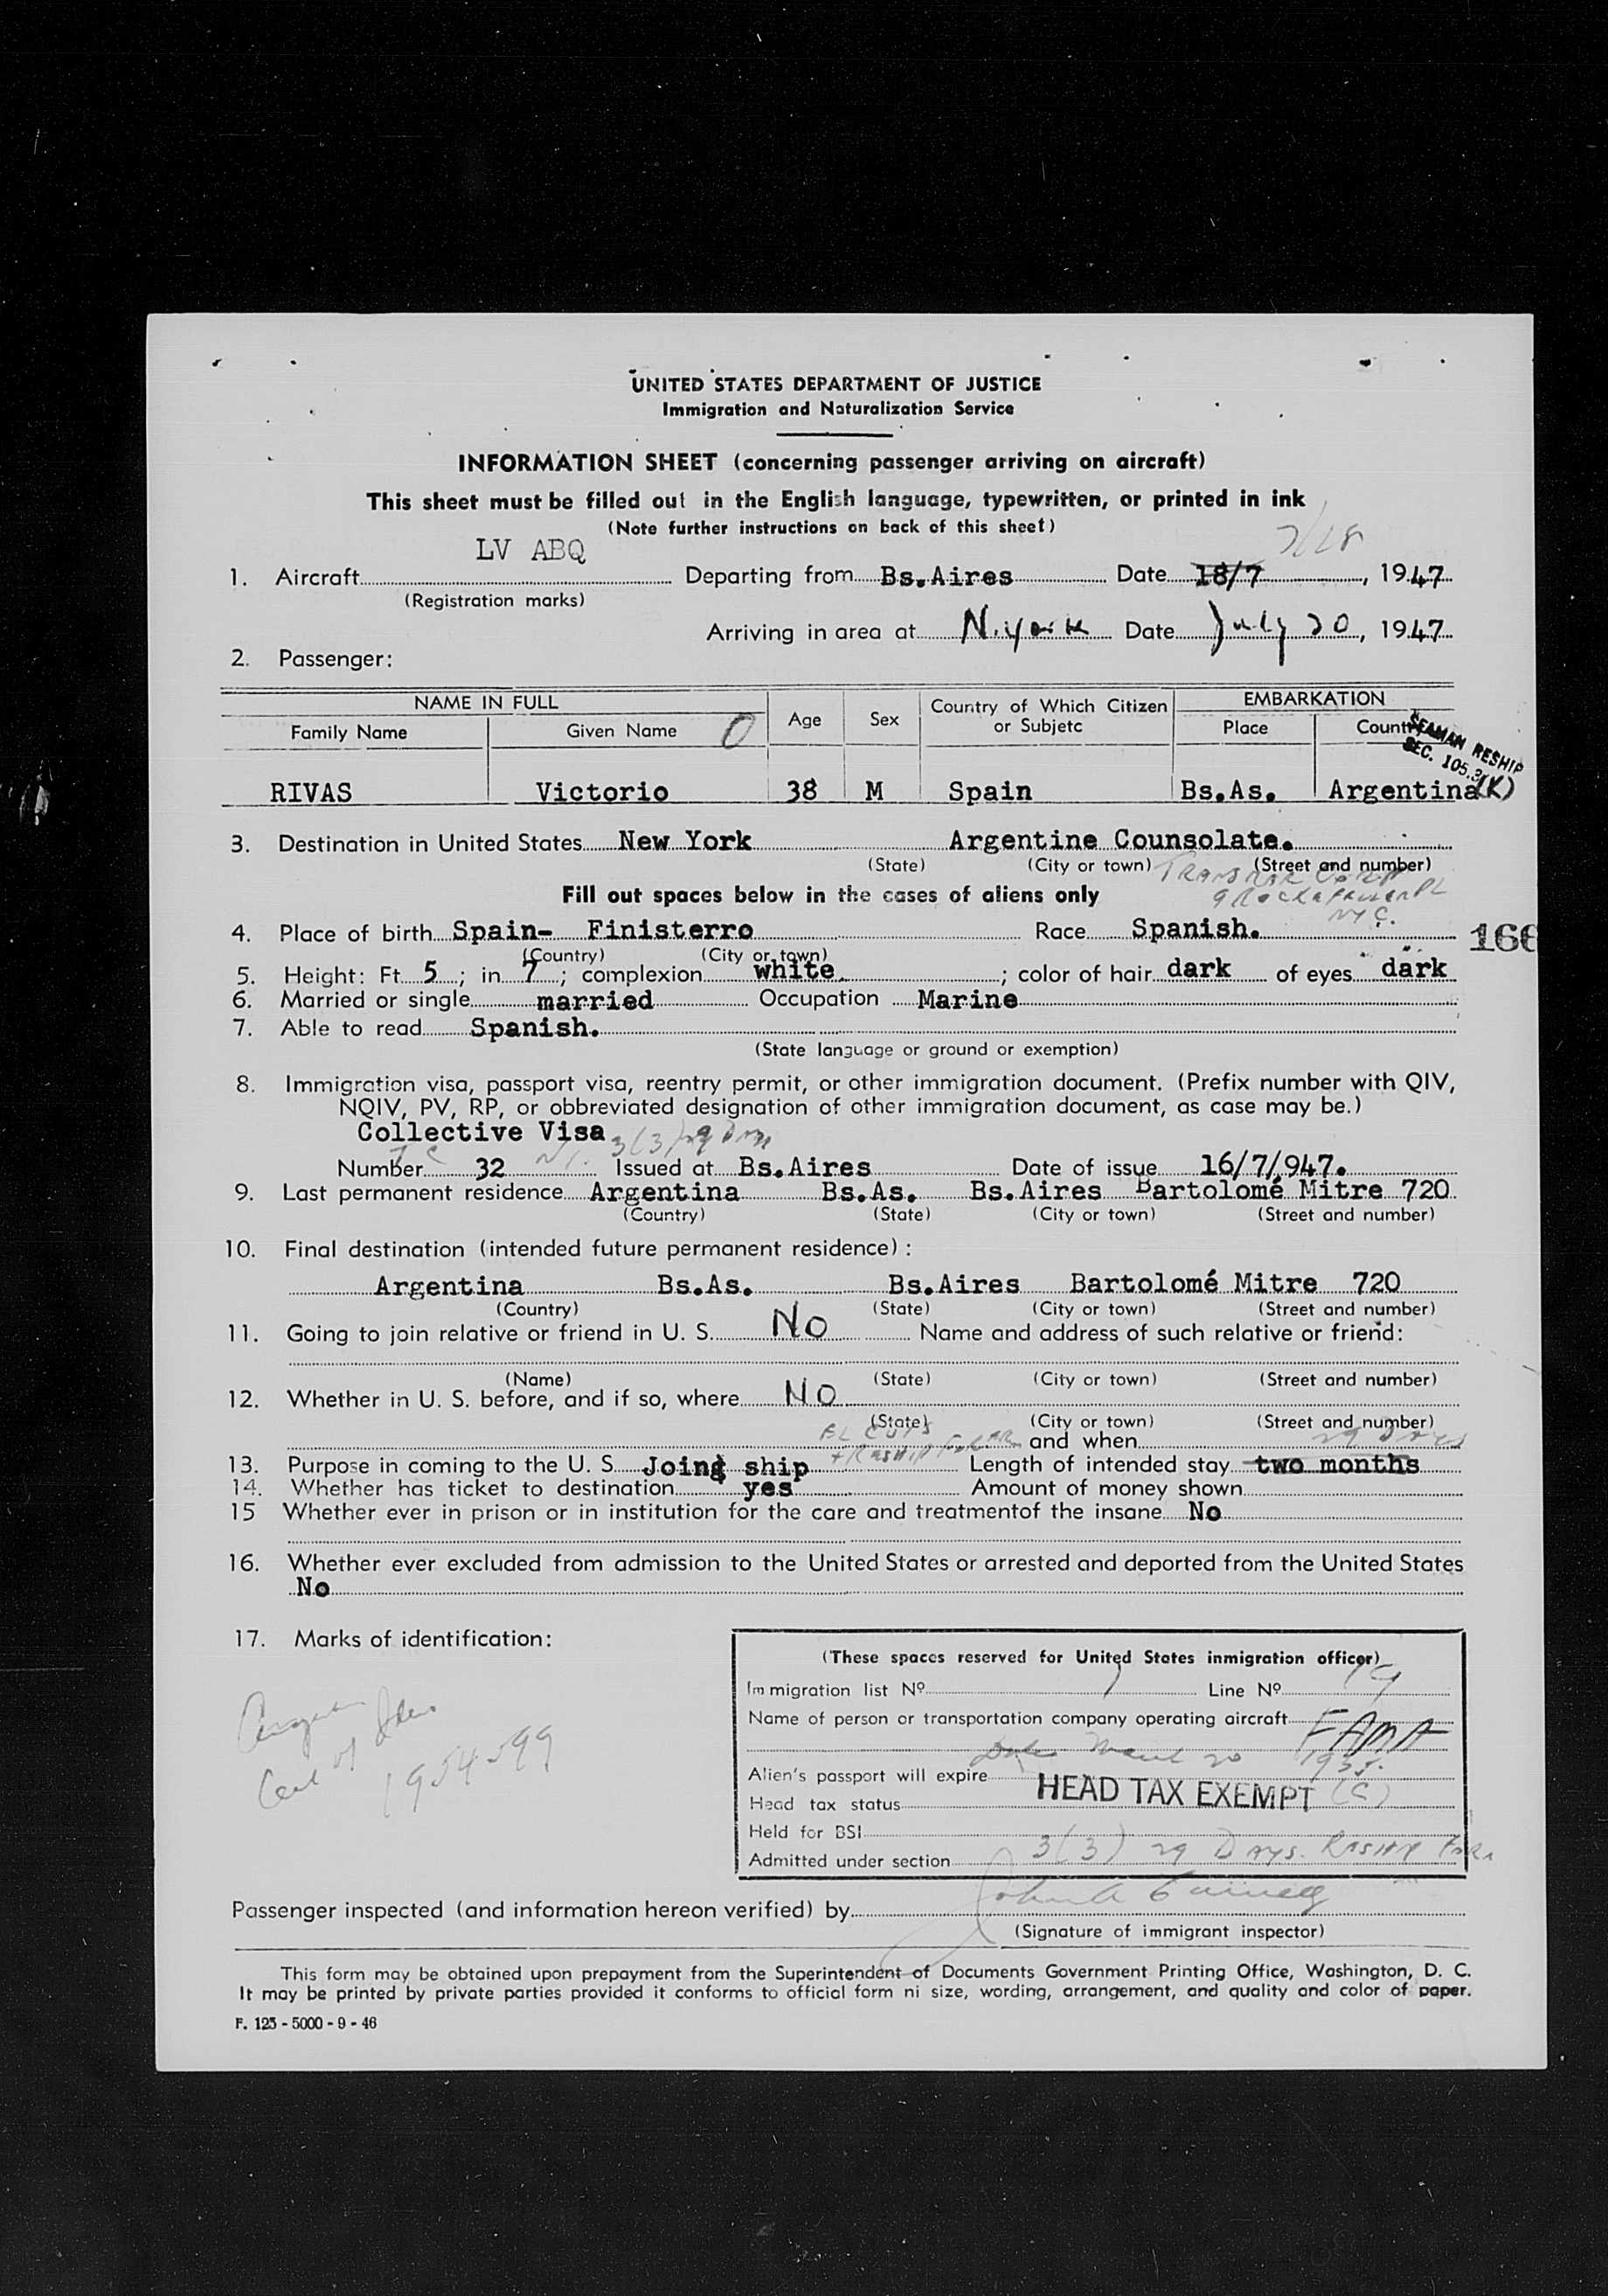 UNITED STATES DEPARTMENT OF JUSTICE
Immigration and Naturalization Service
INFORMATION SHEET (concerning passenger arriving on aircraft)
This sheet must be filled out in the English language, typewritten, or printed in ink
(Note further instructions on back of this sheet)
7/18
LV ABQ
1. Aircraft Departing from Bs.Aires Date 18/7, 1947
(Registration marks)
Arriving in area at N.york Date July 20, 1947
2. Passenger:
NAME IN FULL Age Sex Country of Which Citizen or Subjetc EMBARKATION
Family Name Given Name O Place Country
SEAMAN RESHIP
SEC. 105.3(K)
RIVAS Victorio 38 M Spain Bs.As. Argentina
3. Destination in United States New York Argentine Counsolate.
(State) (City or town) (Street and number)
Fill out spaces below in the cases of aliens only
NYC.
4. Place of birth Spain- Finisterro Race Spanish. 166
(Country) (City or town)
5. Height: Ft. 5 ; in. 7 ; complexion white ; color of hair dark of eyes dark
6. Married or single married Occupation Marine
7. Able to read Spanish.
(State language or ground or exemption)
8. Immigration visa, passport visa, reentry permit, or other immigration document. (Prefix number with QIV,
NQIV, PV, RP, or obbreviated designation of other immigration document, as case may be.)
Collective Visa 3(3) 29 Days
Number 32 Issued at Bs.Aires Date of issue 16/7/947.
9. Last permanent residence Argentina Bs.As. Bs.Aires Bartolomé Mitre 720
(Country) (State) (City or town) (Street and number)
10. Final destination (intended future permanent residence) :
Argentina Bs.As. Bs.Aires Bartolomé Mitre 720
(Country) (State) (City or town) (Street and number)
11. Going to join relative or friend in U. S. No Name and address of such relative or friend:
(Name) (State) (City or town) (Street and number)
12. Whether in U. S. before, and if so, where NO
(State) (City or town) (Street and number)
+ RESHIP and when 29 DAYS
13. Purpose in coming to the U. S. Joing ship Length of intended stay two months
14. Whether has ticket to destination yes Amount of money shown
15 Whether ever in prison or in institution for the care and treatmentof the insane No
16. Whether ever excluded from admission to the United States or arrested and deported from the United States
No
17. Marks of identification:
Cert of 1954599
(These spaces reserved for United States inmigration officer)
Immigration list Nº 1 Line Nº 19
Name of person or transportation company operating aircraft FAMA
Alien's passport will expire
Head tax status HEAD TAX EXEMPT (C)
Held for BSI
Admitted under section 3(3) 29 DAYS. RESHIP
Passenger inspected (and information hereon verified) by
(Signature of immigrant inspector)
This form may be obtained upon prepayment from the Superintendent of Documents Government Printing Office, Washington, D. C.
It may be printed by private parties provided it conforms to official form ni size, wording, arrangement, and quality and color of paper.
F. 123 - 5000 - 9 - 46